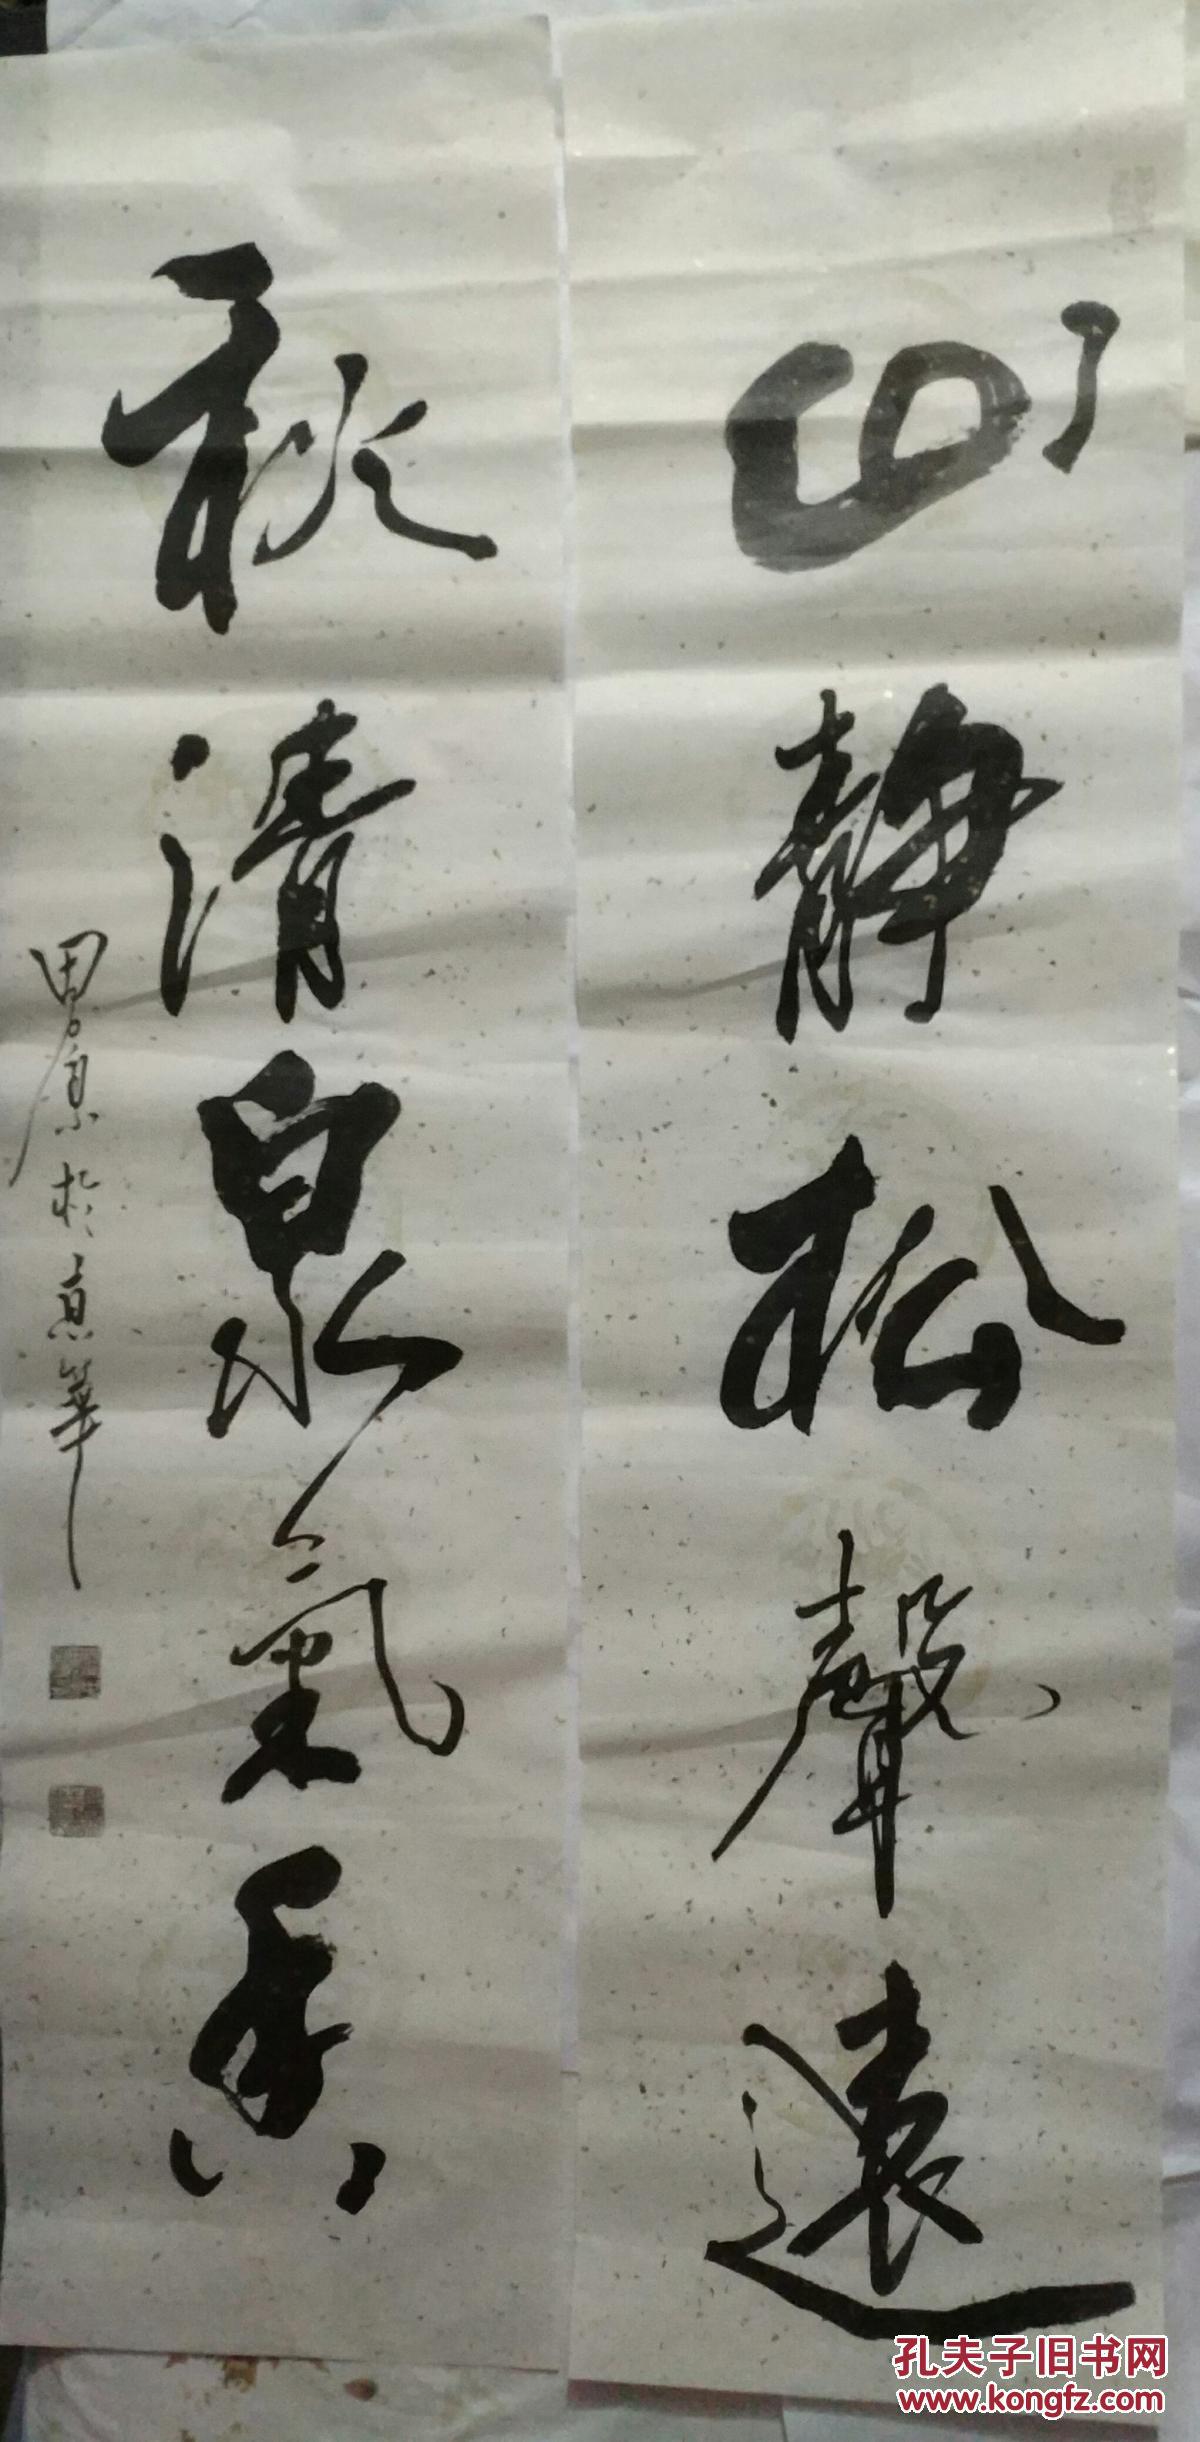 山静松聲遠
秋清泉氣香
孔夫子旧书网
www.kongfz.com